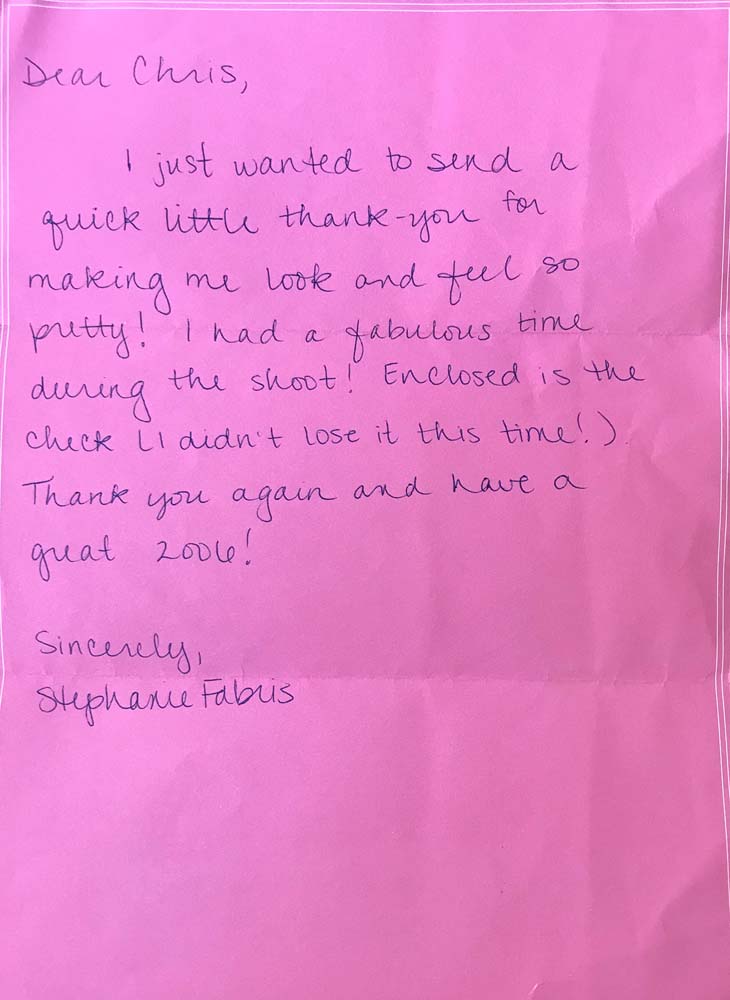 Dear Chris,
I just wanted to send a
quick little thank-you for
making me look and feel so
pretty! I had a fabulous time
during the shoot! Enclosed is the
check (I didn't lose it this time!)
Thank you again and have a
great 2006!
Sincerely,
Stephanie Fabris